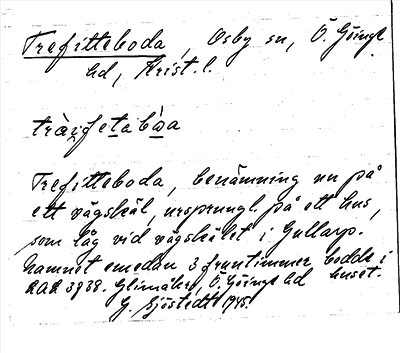 Trefitteboda, Osby sn, Ö. Göinge
hd, Krist. l.
träfetabaa
Trefitteboda, benämning nu på
ett vägskäl, ursprungl. på ett hus,
som låg vid vägskälet i Gullarp.
Namnet emedan 3 fruntimmer bodde i
huset.
RAÄ 3938. Glimåkra, Ö. Göinge hd
G. Sjöstedt 1945.